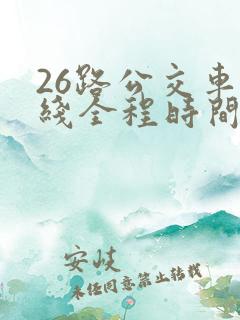 26路公交車
綫全程時間
安岐
未经同意禁止转载